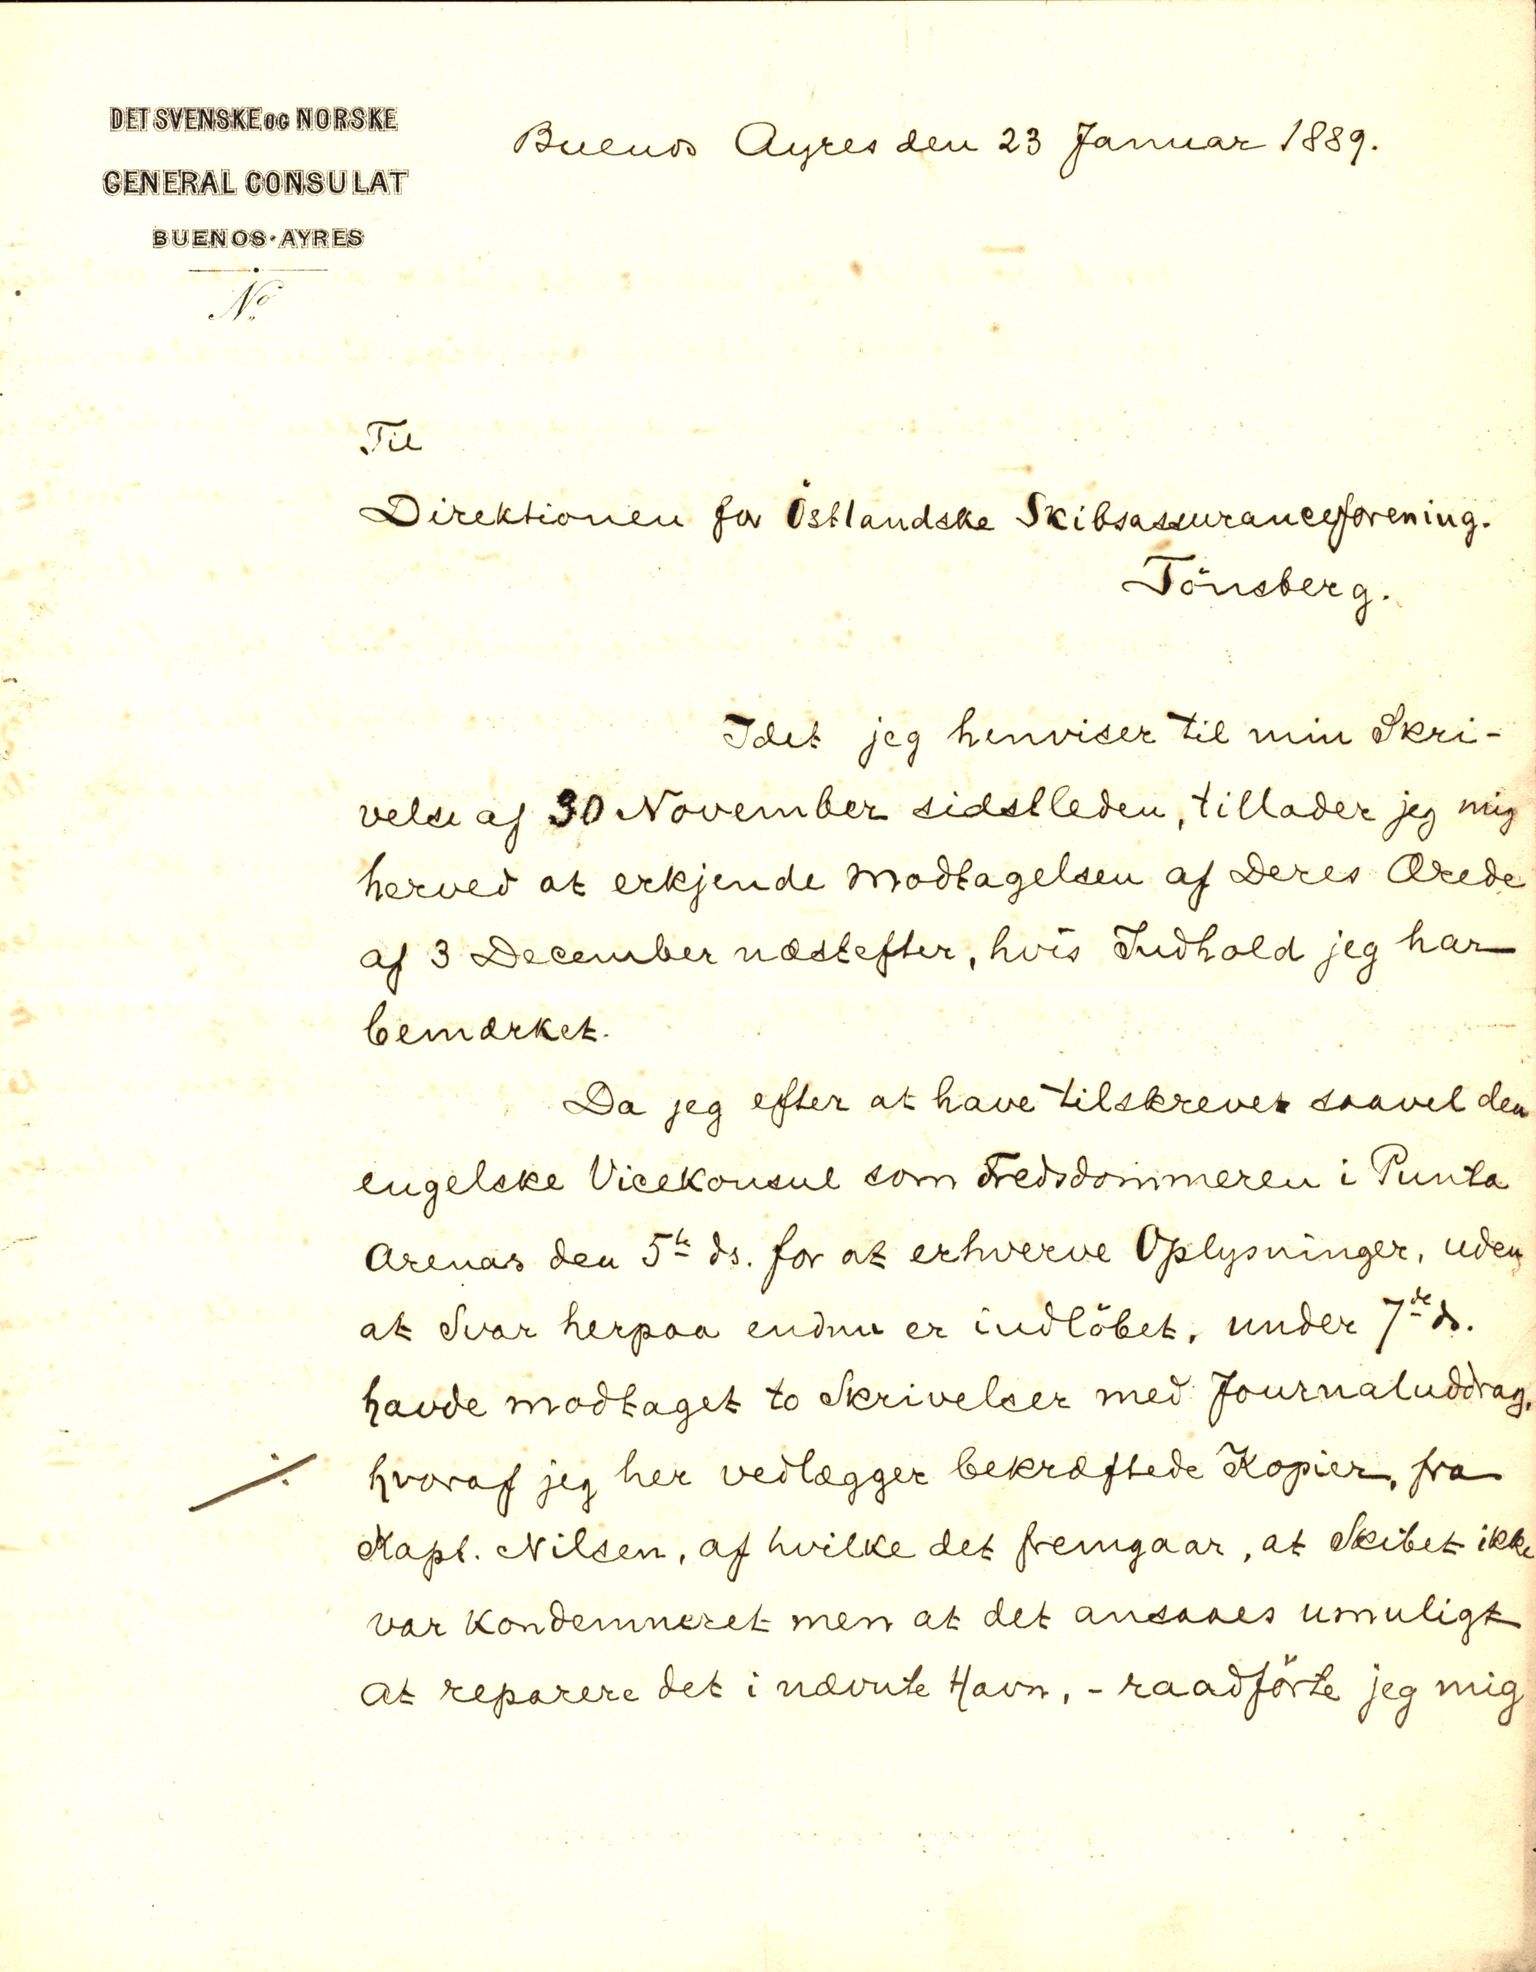 DET SVENSKE OG NORSKE
GENERAL CONSULAT
BUENOS-AYRES
Nº
Buenos Ayres den 23 Januar 1889.
Til
Direktionen for Östlandske Skibsassuranceforening.
Tönsberg.
Idet jeg henviser til min Skri-
velse af 30 November sidstleden, tillader jeg mig
herved at erkjende Modtagelsen af Deres Ærede
af 3 December næstefter, hvis Indhold jeg har
bemærket.
Da jeg efter at have tilskrevet saavel den
engelske Vicekonsul som Fredsdommeren i Punta
Arenas den 5te ds. for at erhverve Oplysninger, uden
at Svar herpaa endnu er indlöbet, under 7de ds.
havde modtaget to Skrivelser med Journaluddrag,
⁒ hvoraf jeg her vedlægger bekræftede Kopier, fra
Kapt. Nilsen, af hvilke det fremgaar, at Skibet ikke
var kondemneret men at det ansaaes umuligt
at reparere det i nævnte Havn, - raadförte jeg mig